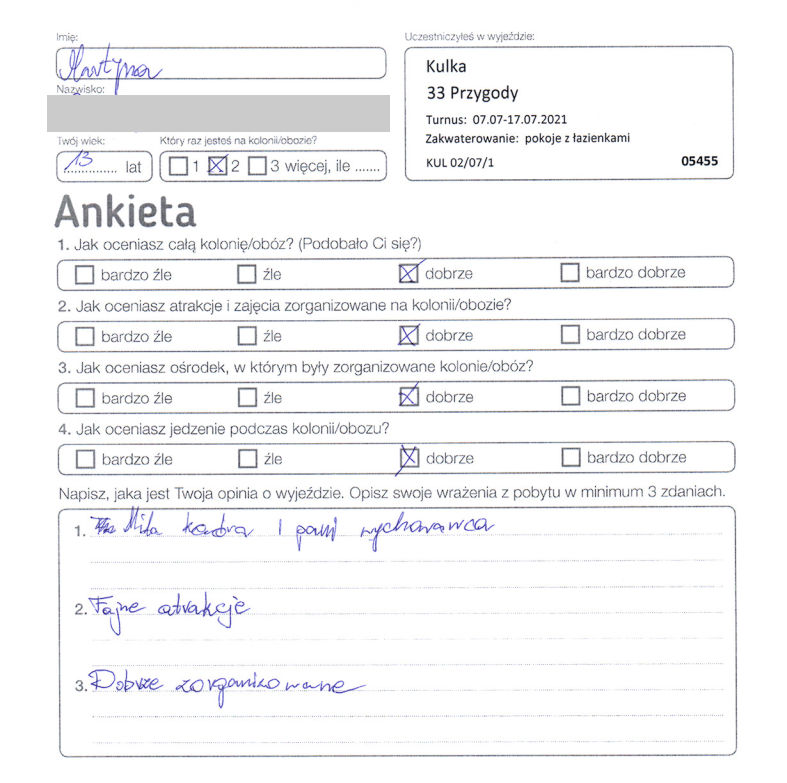 Imię:
Martyna
Nazwisko:
Twój wiek:
Który raz jesteś na kolonii/obozie?
13 lat
1 2 3 więcej, ile .......
Uczestniczyłeś w wyjeździe:
Kulka
33 Przygody
Turnus: 07.07-17.07.2021
Zakwaterowanie: pokoje z łazienkami
KUL 02/07/1 05455
Ankieta
1. Jak oceniasz całą kolonię/obóz? (Podobało Ci się?)
bardzo źle źle dobrze bardzo dobrze
2. Jak oceniasz atrakcje i zajęcia zorganizowane na kolonii/obozie?
bardzo źle źle dobrze bardzo dobrze
3. Jak oceniasz ośrodek, w którym były zorganizowane kolonie/obóz?
bardzo źle źle dobrze bardzo dobrze
4. Jak oceniasz jedzenie podczas kolonii/obozu?
bardzo źle źle dobrze bardzo dobrze
Napisz, jaka jest Twoja opinia o wyjeździe. Opisz swoje wrażenia z pobytu w minimum 3 zdaniach.
1. Miła kadra i pani wychowawca
2. Fajne atrakcje
3. Dobrze zorganizowane